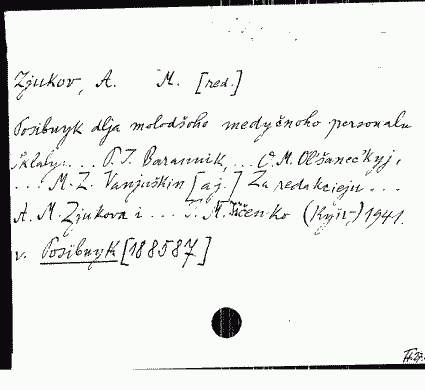 Zjukov, A. M. [red.]
Posibnyk dlja molodšoho medyčnoho personalu
Sklaly: ... P. J. Barannik, ... O. M. Ol'šaneckyj,
... M. Z. Vanjuškin [aj.] Za redakcijeju ...
A. M. Zjukova i ... M. (Kyïv,) 1941.
v. Posibnyk [188587]